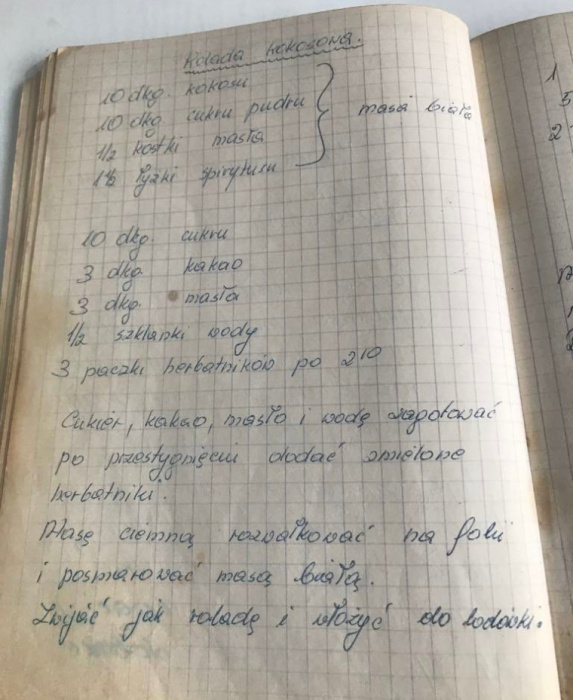 Rolada kokosowa.
10 dkg. kokosu
10 dkg. cukru pudru
masa biała
1/2 kostki masła
1 1/2 łyżki spirytusu
10 dkg. cukru
3 dkg. kakao
3 dkg. masła
1/2 szklanki wody
3 paczki herbatników po 2 10
Cukier, kakao, masło i wodę zagotować
po przestygnięciu dodać zmielone
herbatniki.
Masę ciemną rozwałkować na folii
i posmarować masą białą.
Zwijać jak roladę i włożyć do lodówki.
1
5
2